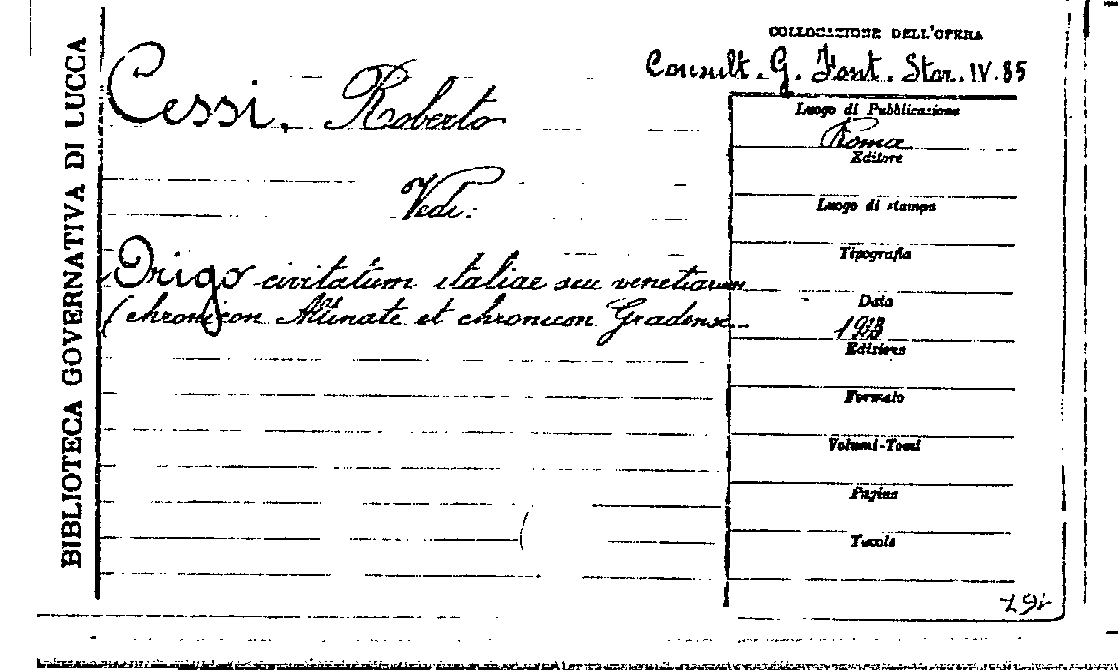 BIBLIOTECA GOVERNATIVA DI LUCCA
COLLOCAZIONE DELL'OPERA
Consult. G. Font. Stor. IV. 85
Cessi, Roberto
Vedi:
Origo civitatum italiae seu venetiarum
(chronicon Altinate et chronicon Gradense
Luogo di Pubblicazione
Roma
Editore
Luogo di stampa
Tipografia
Data
Edizione
Formato
Volumi-Tomi
Pagine
Tavole